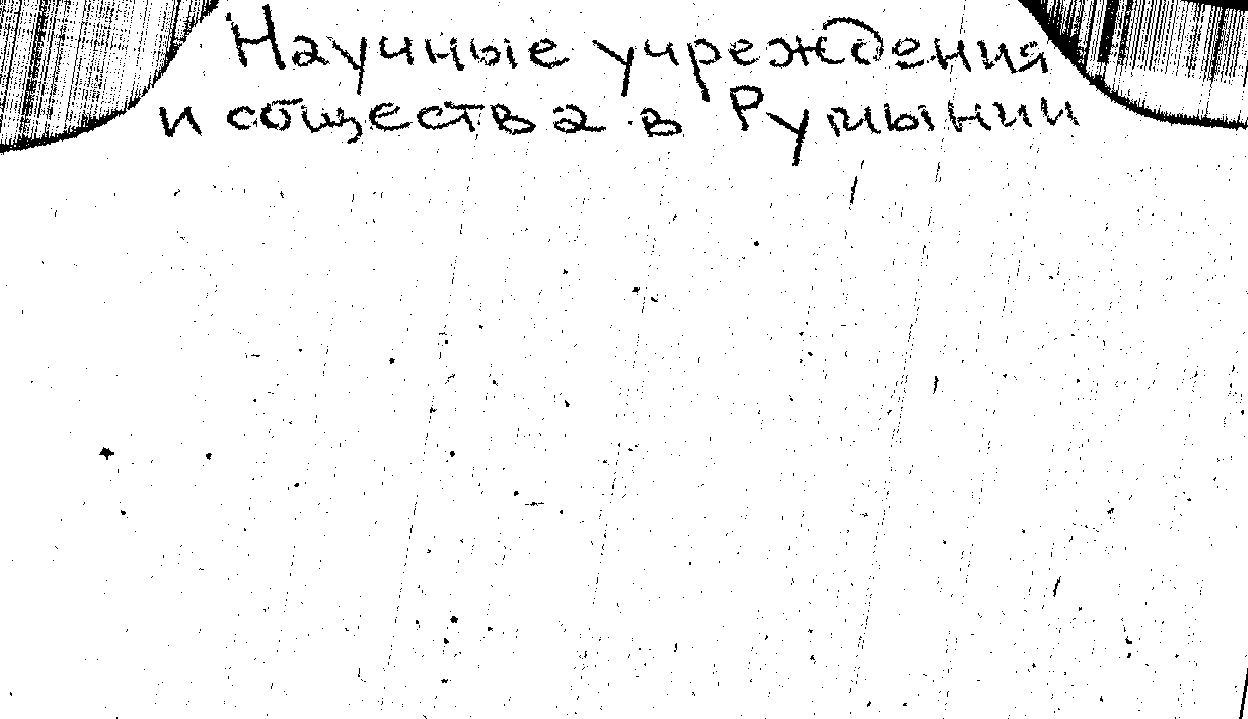 Научные учреждения
и общества в Румынии